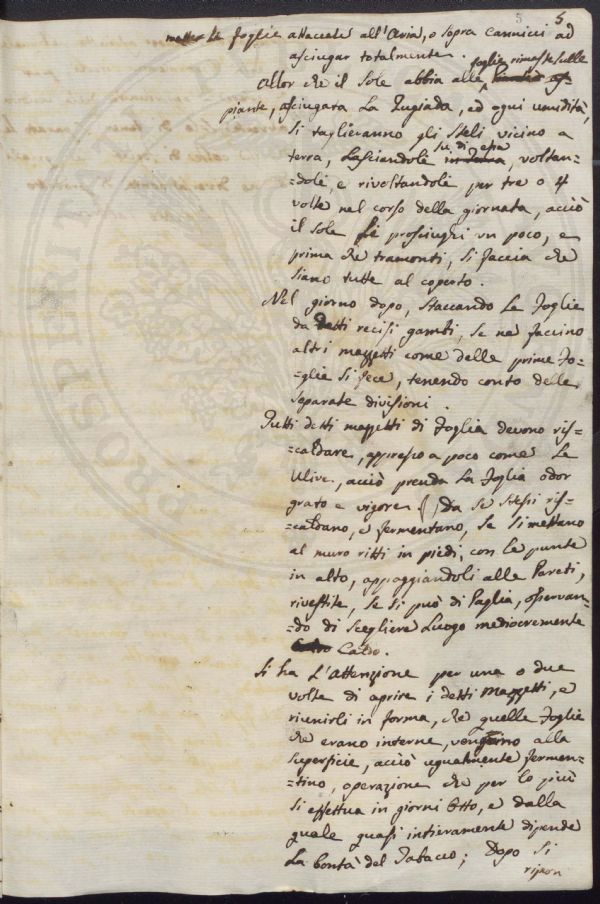 5 5
metter le foglie attaccate all'Aria, o sopra Cannicci ad
asciugar totalmente.
Allor che il Sole abbia alle foglie rimaste sulle
piante, asciugata La Rugiada, ed ogni umidità,
si taglieranno gli Steli vicino a
terra, Lasciandole su di essa, voltan-
=dole, e rivoltandole per tre o 4
volte nel corso della giornata, acciò
il Sole Le prosciughi un poco, e
prima che tramonti, si faccia che
siano tutte al coperto.
Nel giorno dopo, staccando Le Foglie
da detti recisi gambi, se ne faccino
altri mazzetti come delle prime Fo-
=glie si fece, tenendo conto delle
separate divisioni.
Tutti detti mazzetti di Foglia devono ris-
=caldare, appresso a poco come Le
Ulive, acciò prenda La Foglia odor
grato e vigore. Da se stessi ris-
=caldano, e fermentano, se si mettano
al muro ritti in piedi, con Le punte
in alto, appoggiandoli alle Pareti,
rivestite, se si può di Paglia, osservan-
=do di scegliere Luogo mediocremente
Caldo.
Si ha L'attenzione per una o due
volte di aprire i detti Mazzetti, e
riunirli in forma, che quelle Foglie
che erano interne, venghino alla
superficie, acciò ugualmente fermen-
=tino, operazione che per lo più
si effettua in giorni Otto, e dalla
quale quasi intieramente dipende
La bontà del Tabacco; Dopo si
ripon
PROSPER